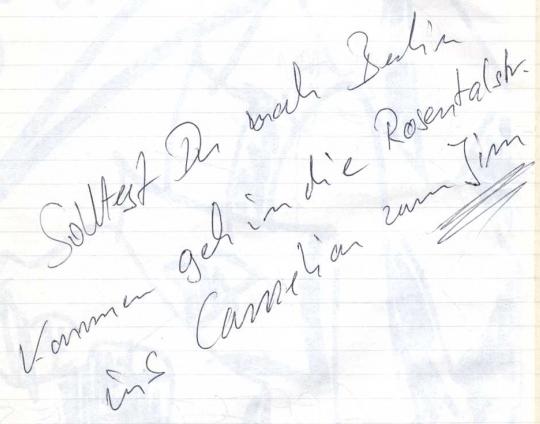 Solltest Du nach Berlin
kommen geh in die Rosentalstr.
ins Cameleon zum Jim